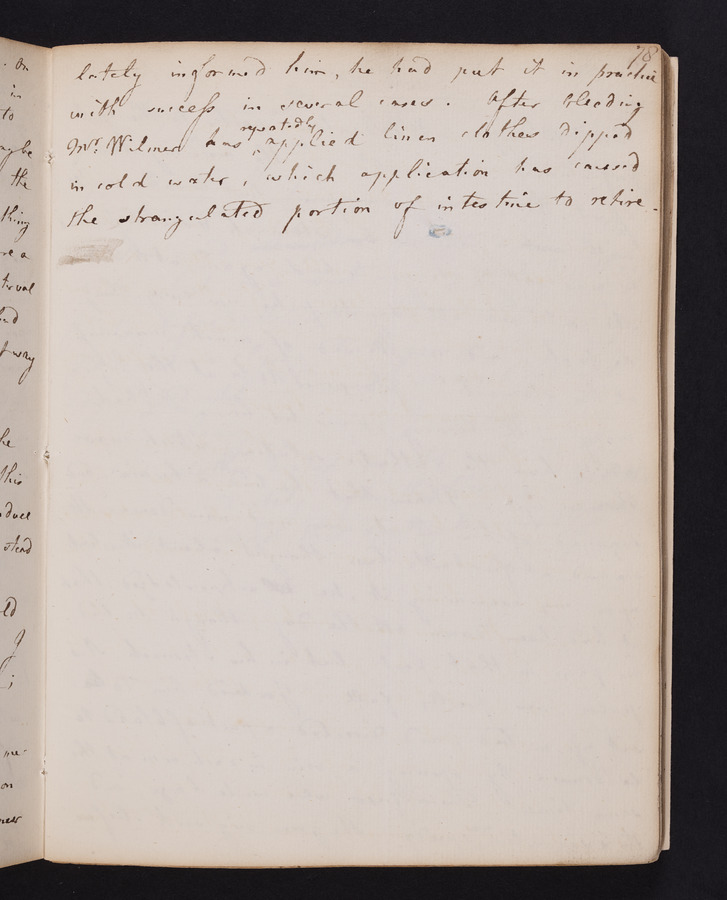 78
lately informed him, he had put it in practice
with success in several cases. After bleeding
Mr. Wilmer has repeatedly applied linen clothes dipped
in cold water, which application has caused
the strangulated portion of intestine to retire.
on
in
to
the
thing
re a
terval
he
this
stead
ld
me-
on